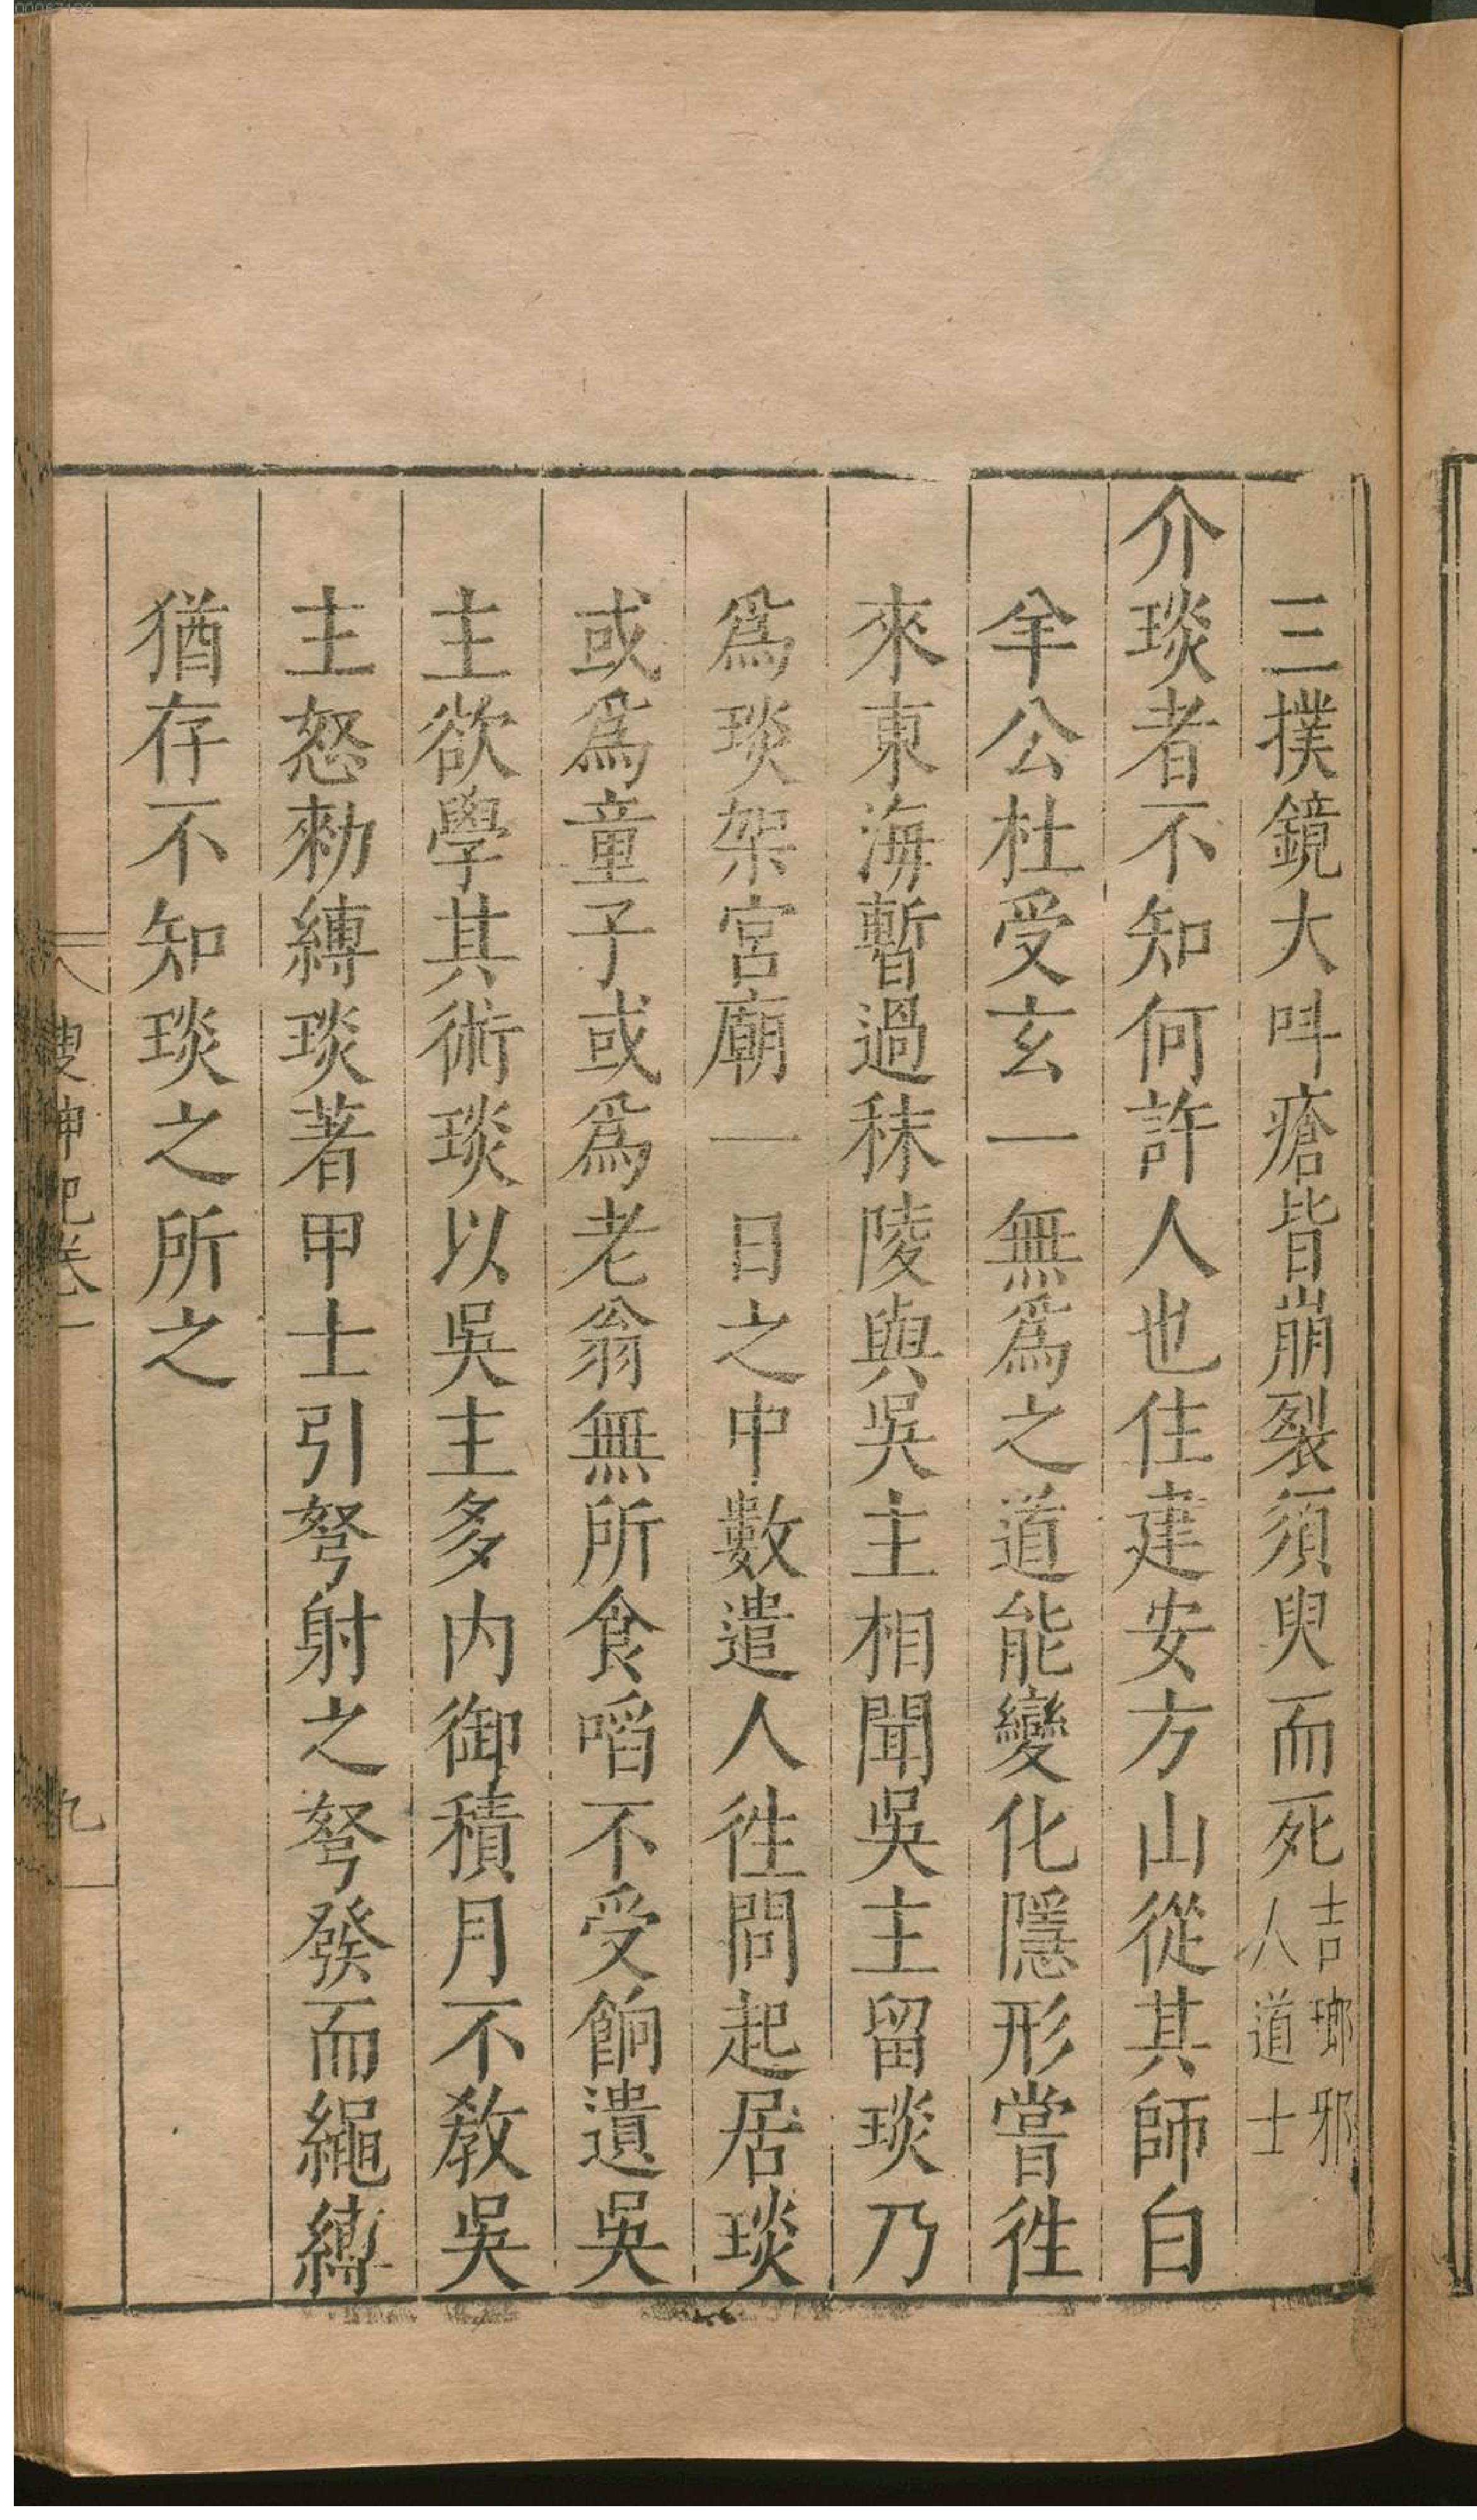 三撲鏡大呌瘡皆崩裂須臾而死吉瑯邪人道士
介琰者不知何許人也住建安方山從其師白
羊公杜受玄一無爲之道能變化隱形嘗徃
來東海暫過秣陵與吳主相聞吳主留琰乃
爲琰架宮廟一日之中數遣人徃問起居琰
或爲童子或爲老翁無所食啗不受餉遺吳
主欲學其術琰以吳主多内御積月不教吳
主怒勑縛琰著甲士引弩射之弩發而繩縛
猶存不知琰之所之
搜神記卷一
九
00067192